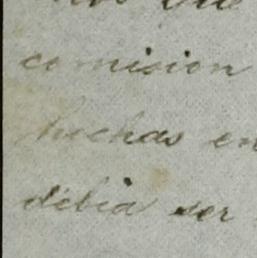 nos que
comision
hechas en
debia ser